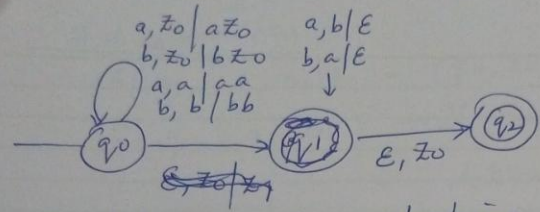 a, z0 | a z0
b, z0 | b z0
a, a | a a
b, b | b b
a, b | ε
b, a | ε
q0
q1
q2
ε, z0